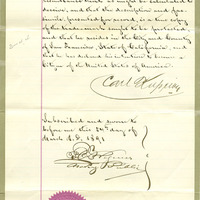 resemblance thereto as might be calculated to
deceive, and that the description and fac-
simile presented for record, is a true copy
of the trademark sought to be protected,
and that he resides in the City and County
of San Francisco, State of California, and
has declared his intention to become a
Citizen of the United States of America.
Carl Uspein
Subscribed and sworn to
before me this 24th day of
March A.D. 1891